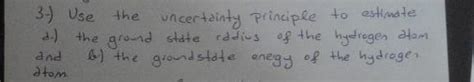 3-) Use the uncertainty principle to estimate
a-) the ground state radius of the hydrogen atom
and b-) the groundstate onegy of the hydrogen
atom